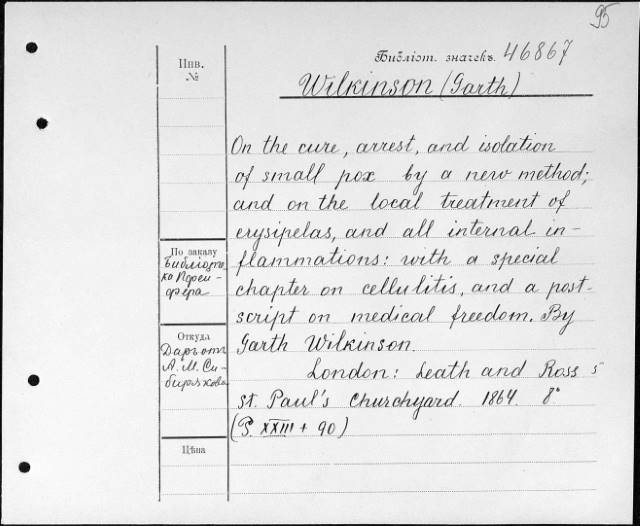 95
Инв.
№
Библіот. значекъ. 46867
Wilkinson (Garth)
On the cure, arrest, and isolation
of small pox by a new method;
and on the local treatment of
erysipelas, and all internal in-
flammations: with a special
chapter on cellulitis, and a post-
script on medical freedom. By
Garth Wilkinson.
London: Leath and Ross 5
St. Paul's Churchyard. 1864. 8°
(P. XXIII + 90)
По заказу
Библіоте
ка
Откуда
Даръ отъ
А. М. Си-
бирякова
Цѣна